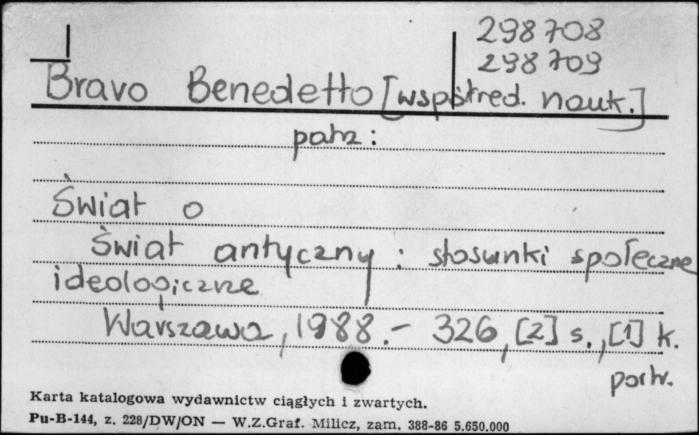 298708
298709
Bravo Benedetto [współred. nauk.]
patrz:
Świat o
Świat antyczny : stosunki społeczne
ideologiczne
Warszawa, 1988.- 326, [2] s., [1] k.
portr.
Karta katalogowa wydawnictw ciągłych i zwartych.
Pu-B-144, z. 228/DW/ON — W.Z.Graf. Milicz, zam. 388-86 5.650.000